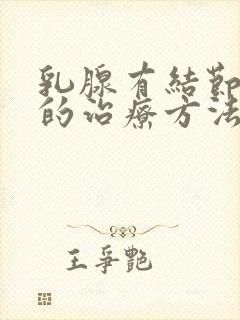 乳腺有結節
的治療方法
王爭艷